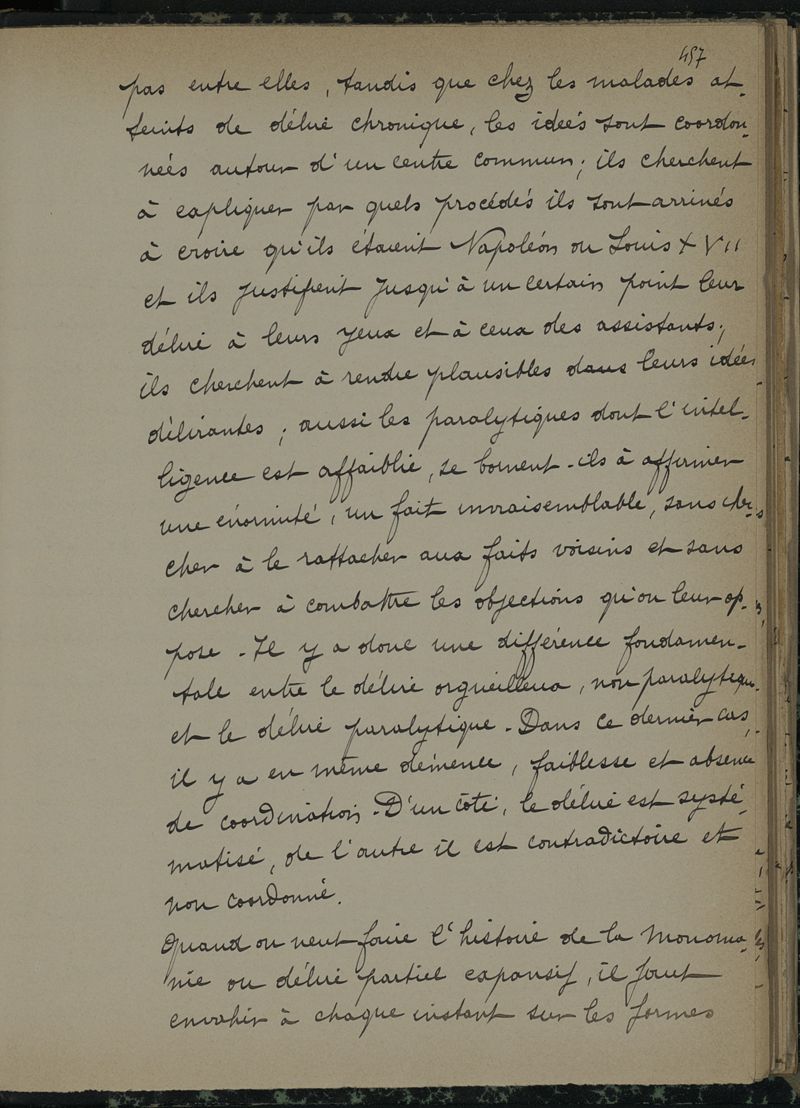 457
pas entre elles, tandis que chez les malades at-
teints de délire chronique, les idées sont coordon-
nées autour d'un centre commun; ils cherchent
à expliquer par quels procédés ils sont arrivés
à croire qu'ils étaient Napoléon ou Louis XVII
et ils justifient jusqu'à un certain point leur
délire à leurs yeux et à ceux des assistants;
ils cherchent à rendre plausibles dans leurs idées
délirantes; aussi les paralytiques dont l'intel-
ligence est affaiblie, se bornent-ils à affirmer
une énormité, un fait invraisemblable, sans cher-
cher à le rattacher aux faits voisins et sans
chercher à combattre les objections qu'on leur op-
pose - Il y a donc une différence fondamen-
tale entre le délire orgueilleux, non paralytique
et le délire paralytique - Dans ce dernier cas,
il y a en même démence, faiblesse et absence
de coordination - D'un côté, le délire est systé-
matisé, de l'autre il est contradictoire et
non coordonné.
Quand on veut faire l'histoire de la Monoma-
nie ou délire partiel expansif, il faut
envahir à chaque instant sur les formes